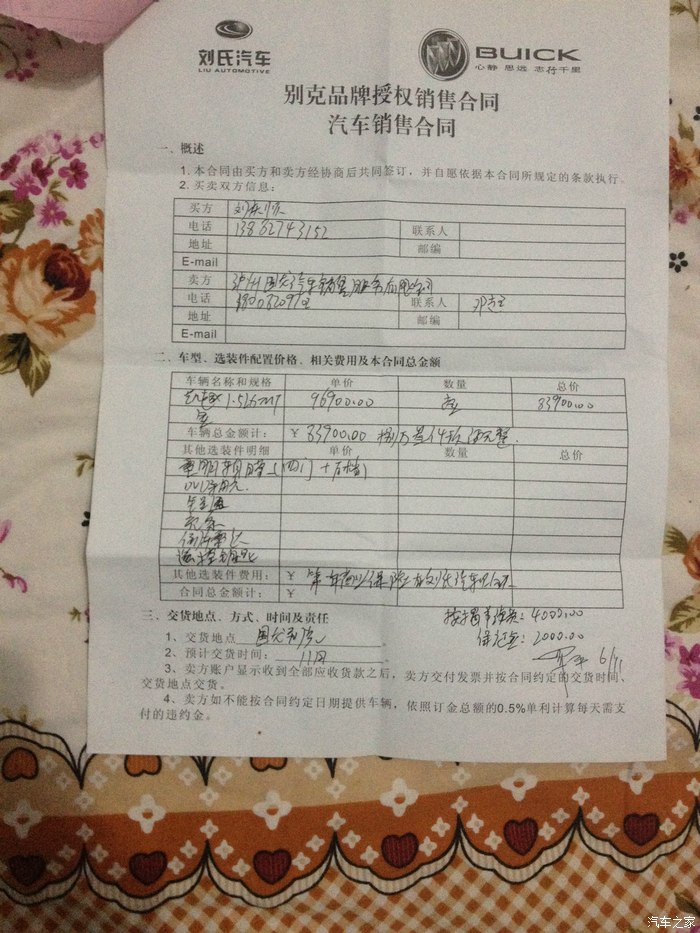 刘氏汽车
LIU AUTOMOTIVE
BUICK
心静 思远 志行千里
别克品牌授权销售合同
汽车销售合同
一、概述
1. 本合同由买方和卖方经协商后共同签订，并自愿依据本合同所规定的条款执行。
2. 买卖双方信息：
买方 刘
电话 13882743152 联系人
地址 邮编
E-mail
卖方 泸州国龙汽车销售服务有限公司
电话 联系人 邓
地址 邮编
E-mail
二、车型、选装件配置价格、相关费用及本合同总金额
车辆名称和规格 单价 数量 总价
1.5 MT 96900.00 壹 83900.00
车辆总金额计： ￥ 83900.00 捌万叁仟玖佰元整
其他选装件明细 单价 数量 总价
其他选装件费用： ￥ 第一年商业保险在刘氏汽车
合同总金额计： ￥
按揭手续费：4000.00
保证金：2000.00
三、交货地点、方式、时间及责任
1、交货地点 国龙别克
2、预计交货时间： 11月
6/11
3、卖方账户显示收到全部应收货款之后，卖方交付发票并按合同约定的交货时间、
交货地点交货。
4、卖方如不能按合同约定日期提供车辆，依照订金总额的0.5%单利计算每天需支
付的违约金。
汽车之家